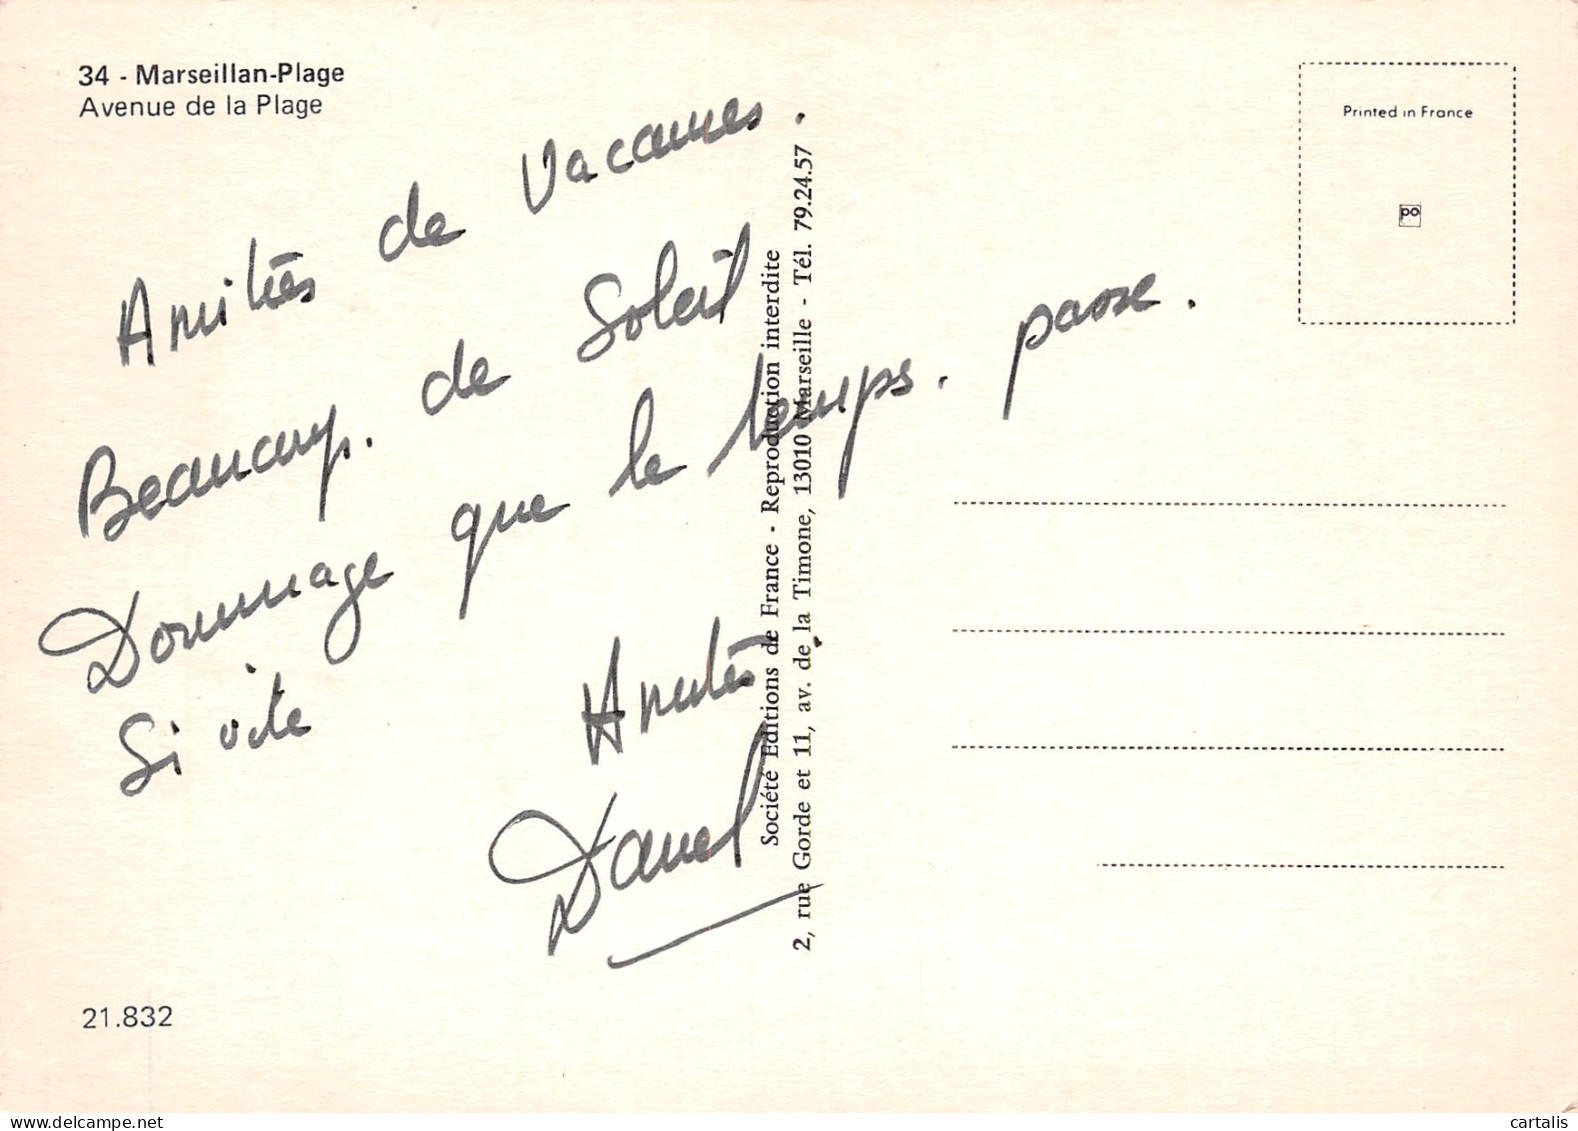 34 - Marseillan-Plage
Avenue de la Plage
Printed in France
po
Amitiés de Vacances.
Beaucoup. de Soleil
Dommage que le temps. passe.
Si vite
Amitiés
Daniel
Société Editions de France - Reproduction interdite
2, rue Gorde et 11, av. de la Timone, 13010 Marseille - Tél. 79.24.57
21.832
delcampe.net
cartalis